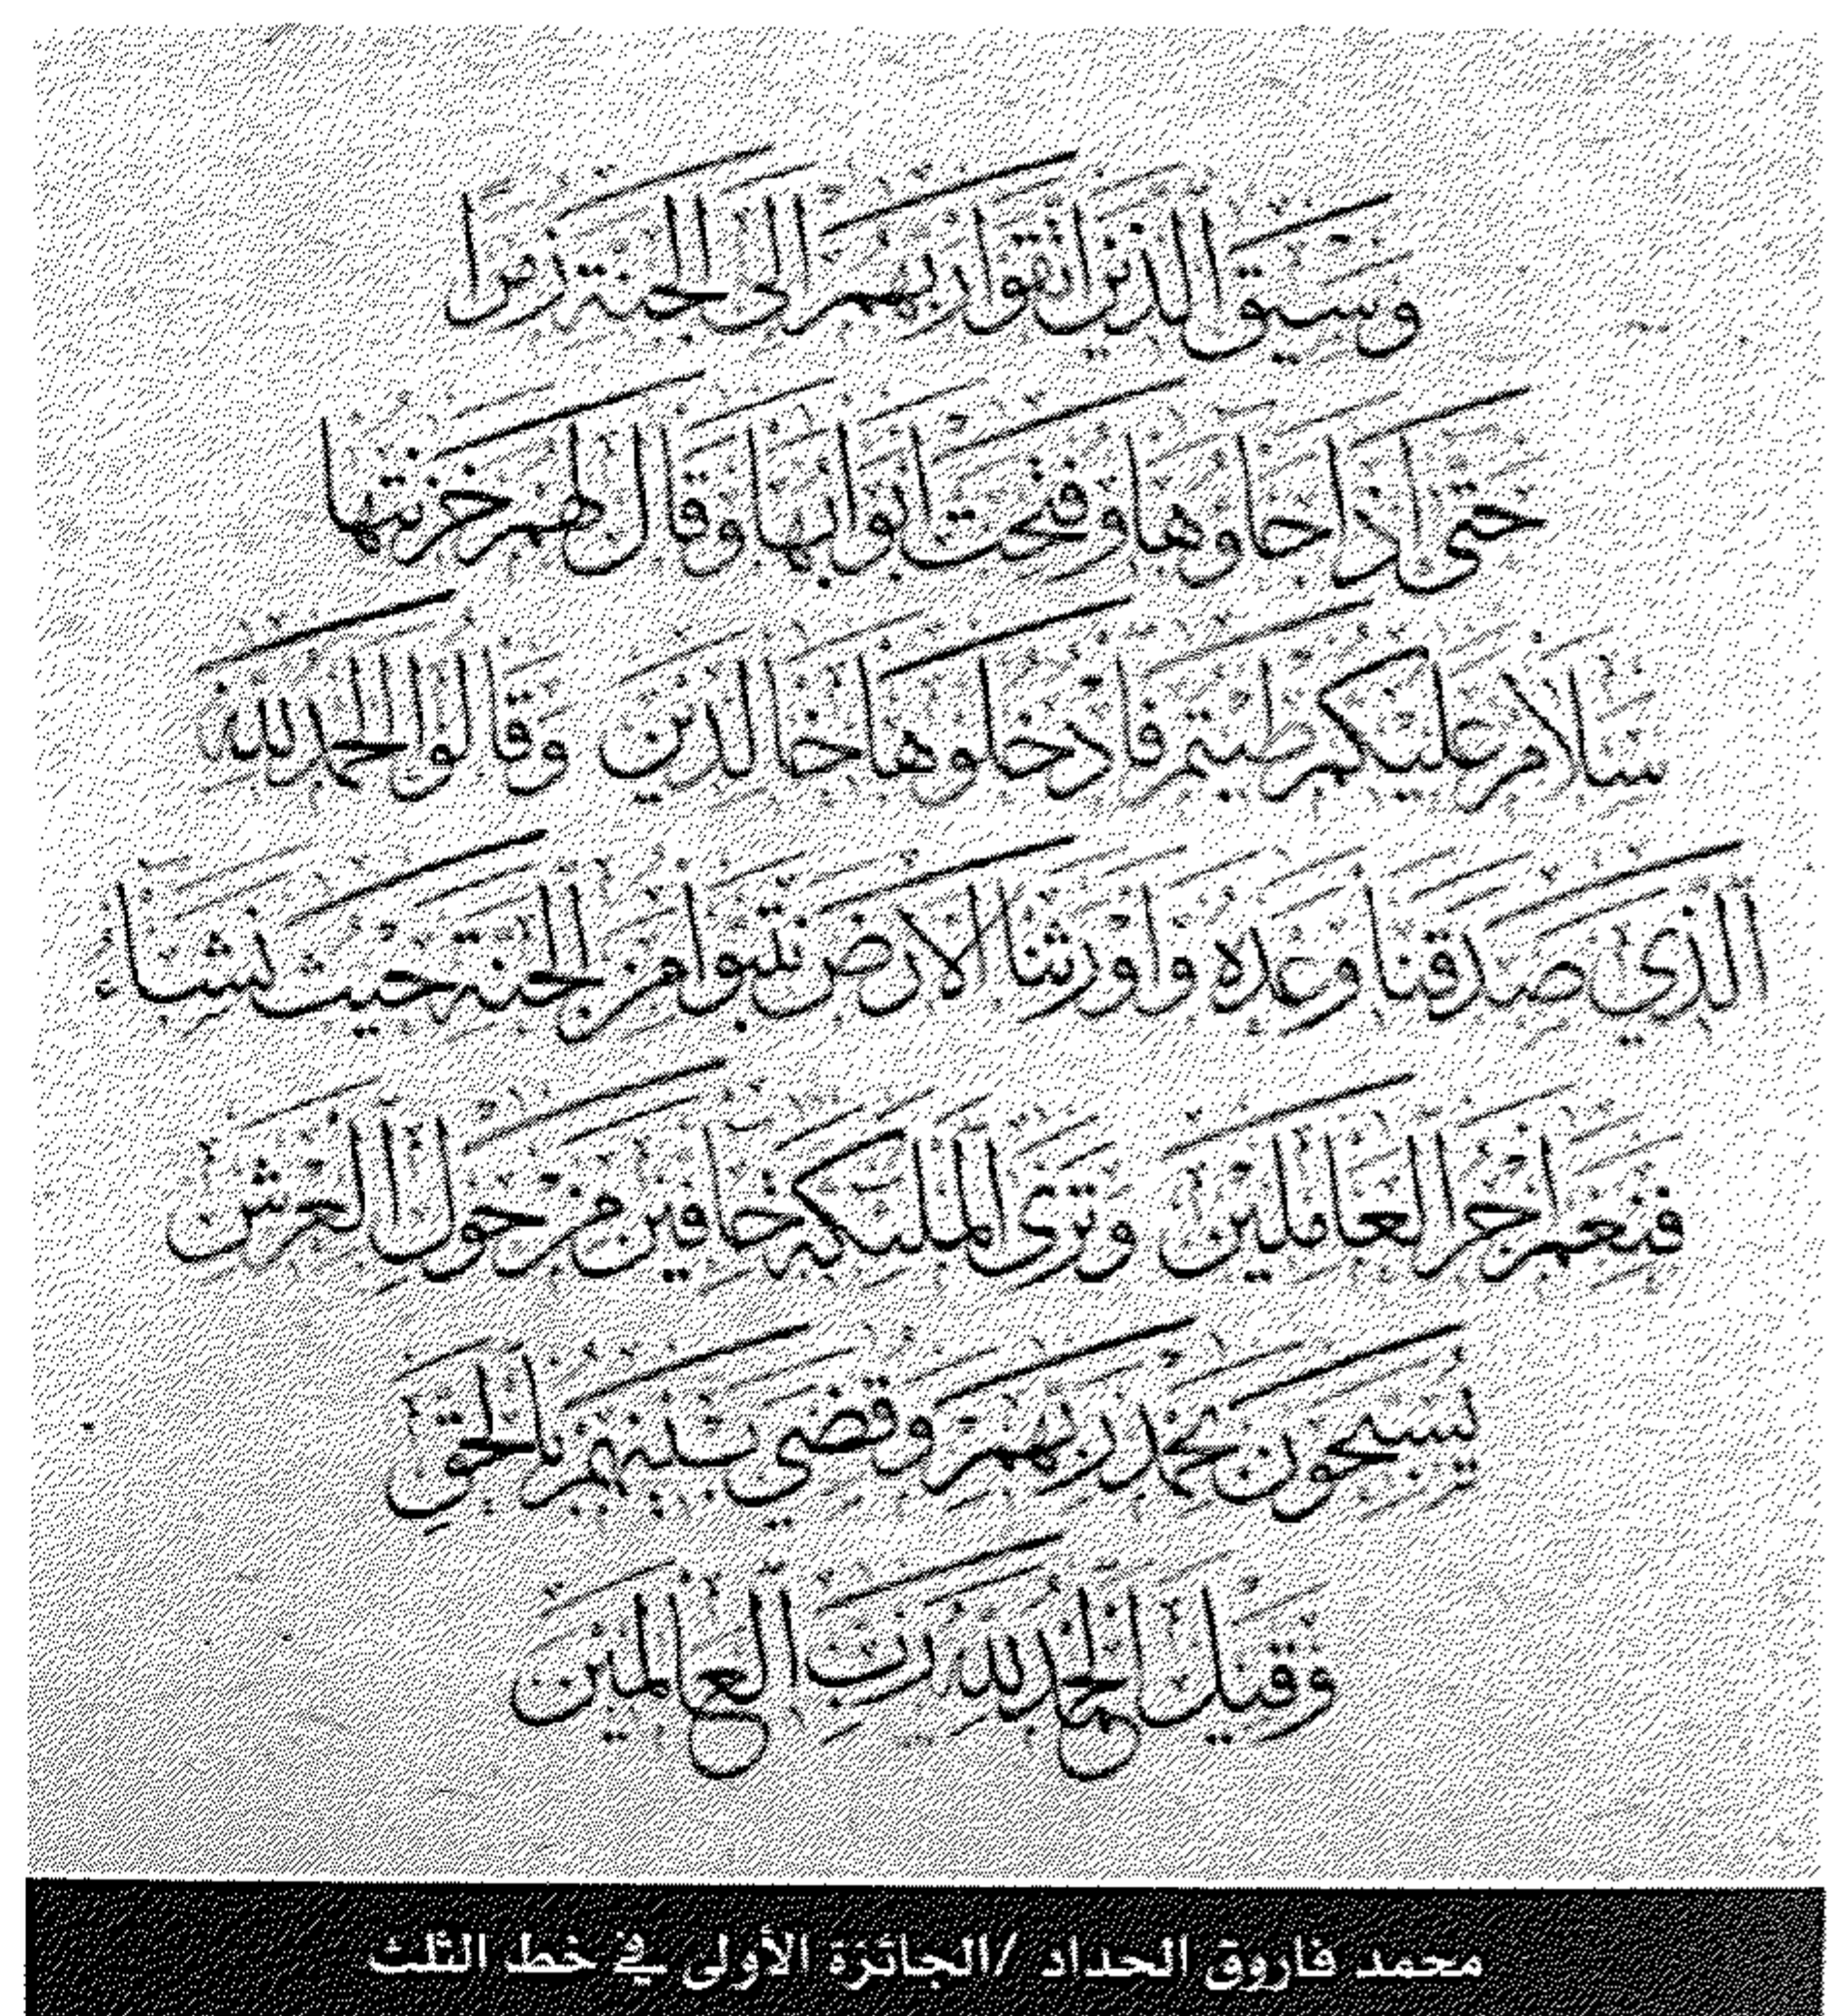 وسيق الذين اتقوا ربهم الى الجنة زمرا
حتى اذا جاؤها وفتحت ابوابها وقال لهم خزنتها
سلام عليكم طبتم فادخلوها خالدين وقالوا الحمد لله
الذي صدقنا وعده واورثنا الارض نتبوأ من الجنة حيث نشاء
فنعم اجر العاملين وترى الملئكة حافين من حول العرش
يسبحون بحمد ربهم وقضي بينهم بالحق
وقيل الحمد لله رب العالمين
محمد فاروق الحداد /الجائزة الأولى في خط الثلث